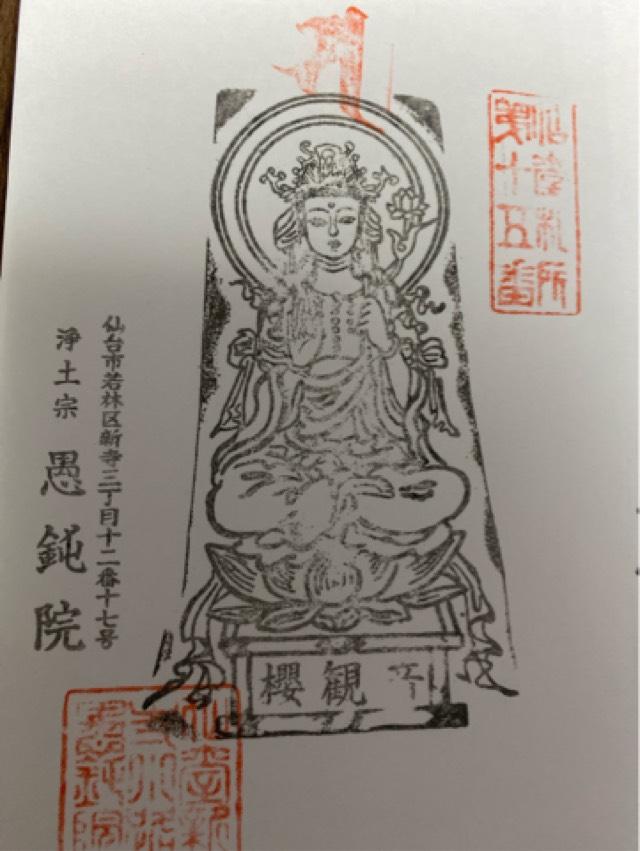 仙臺札所
第十五番
櫻觀音
仙台市若林区新寺三丁目十二番十七号
淨土宗 愚鈍院
愚鈍院